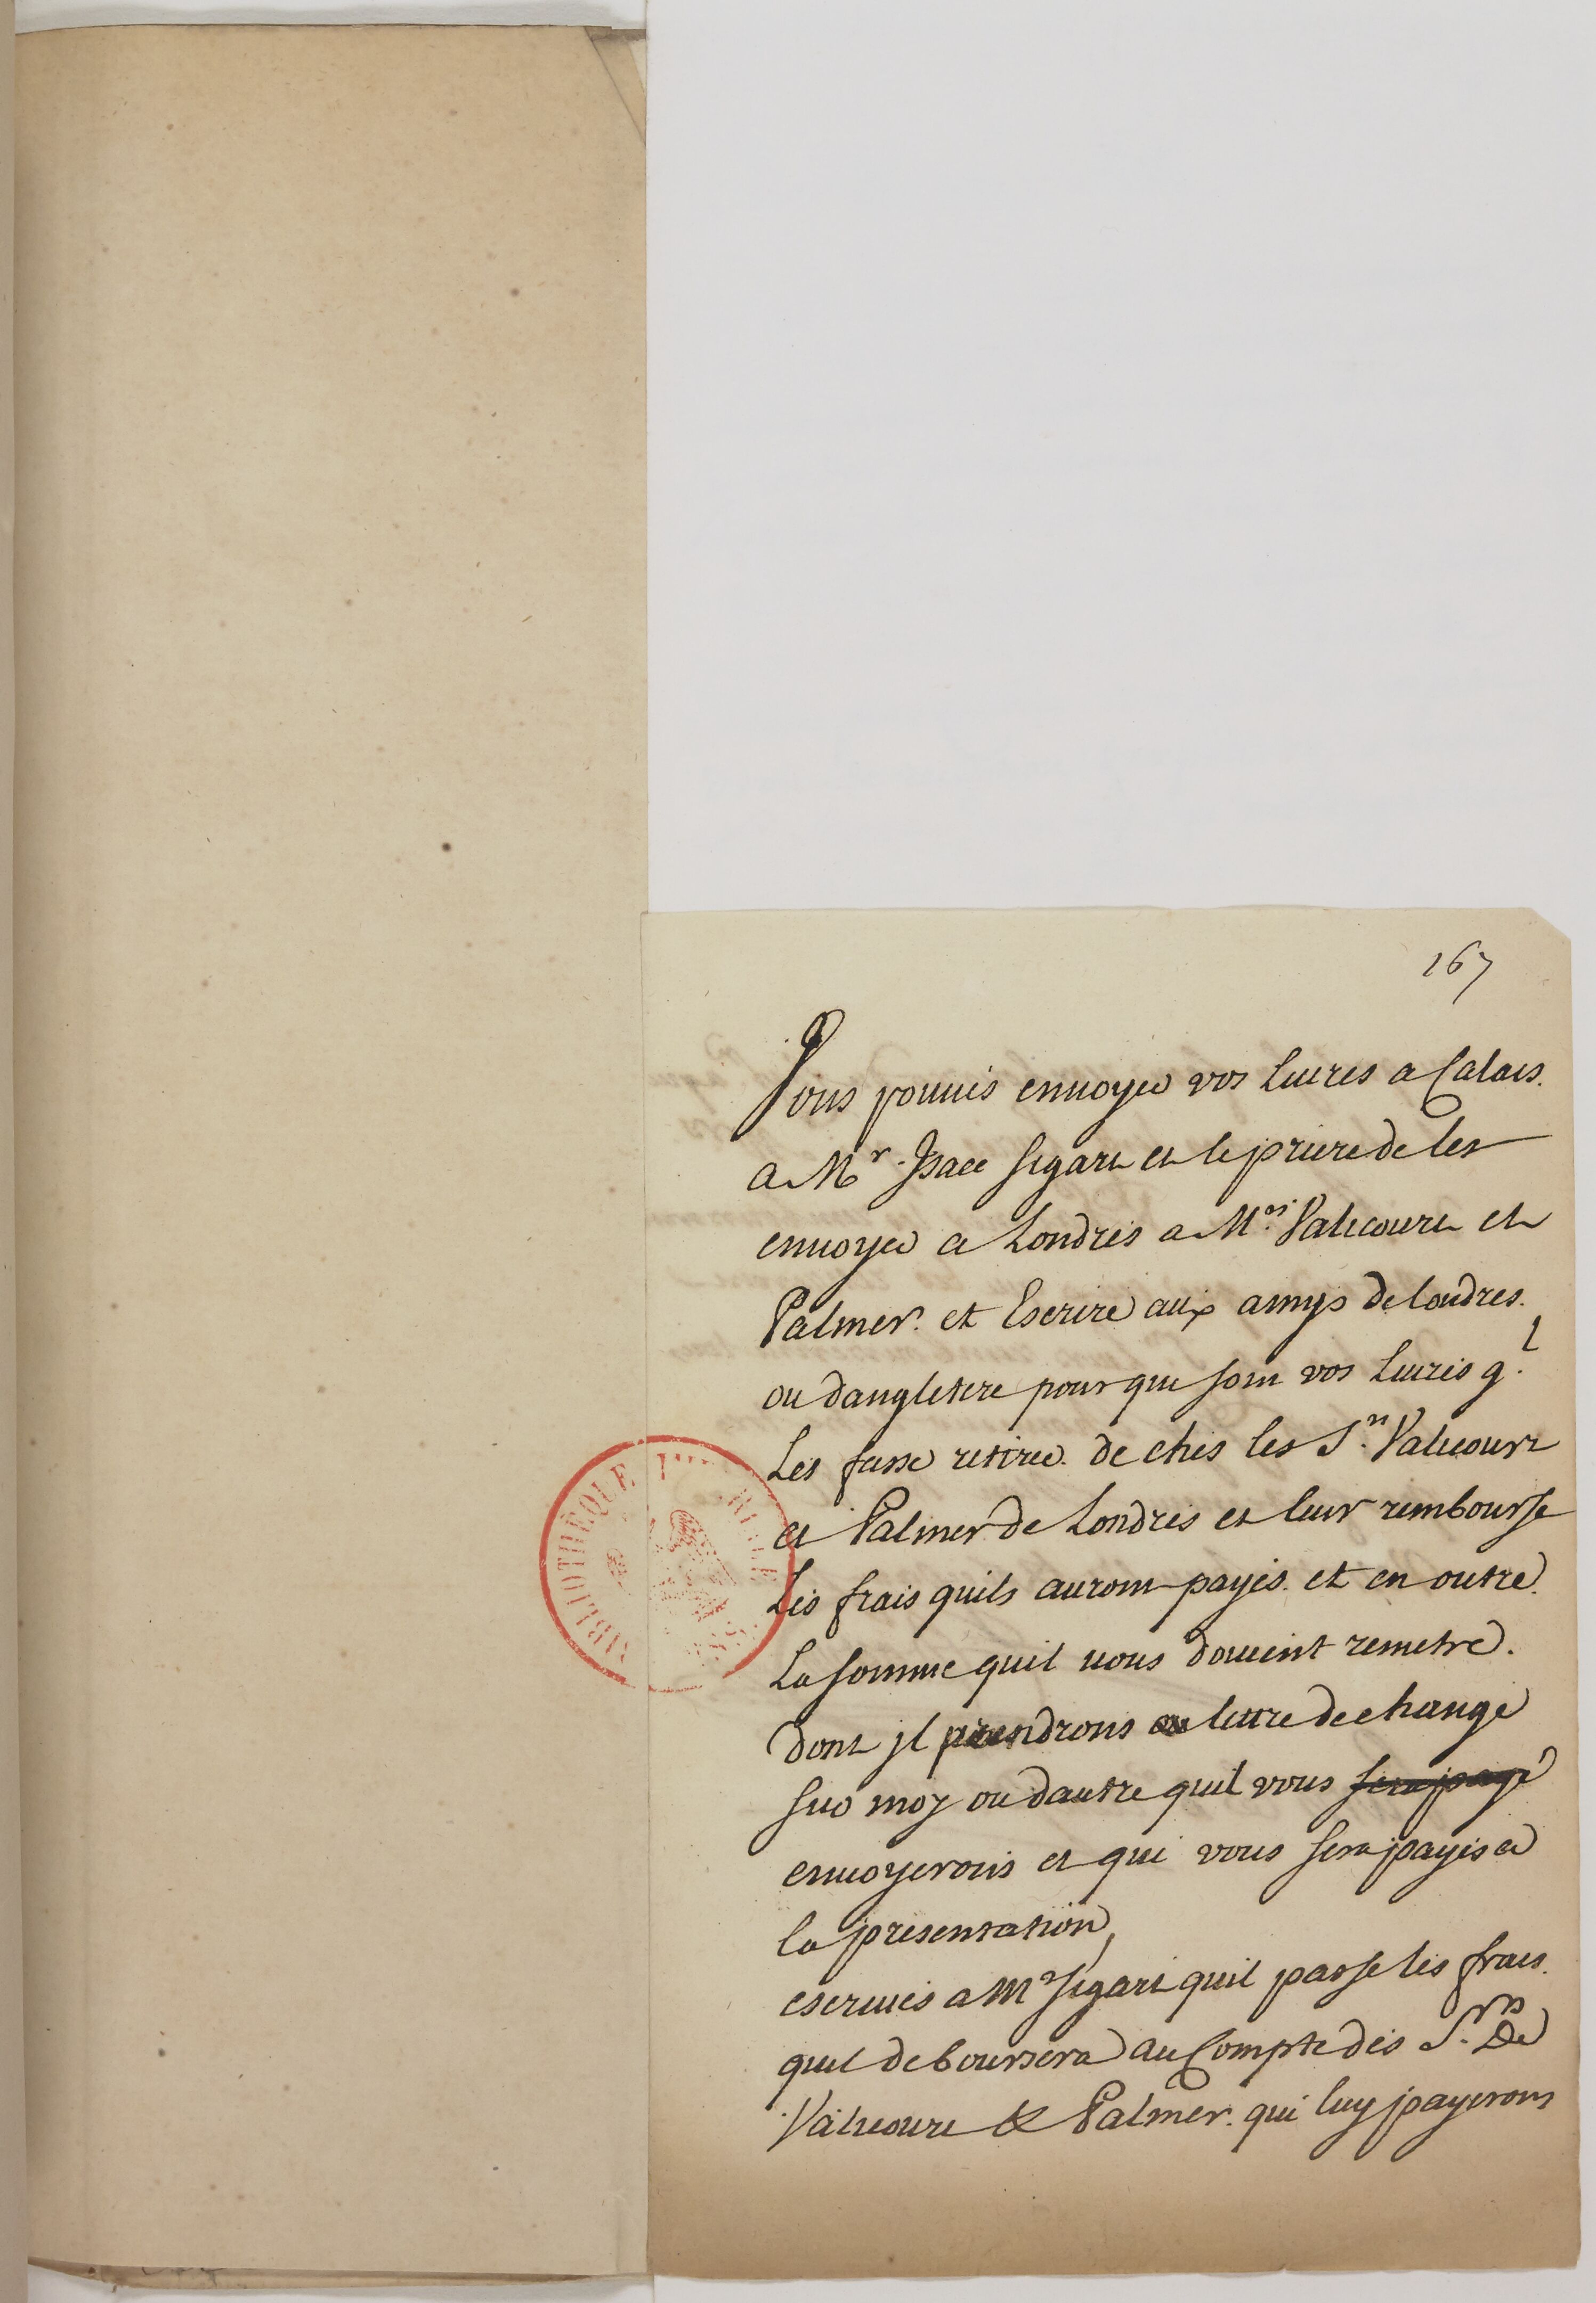 167
Vous pouués enuoyer vos Liures a Calais.
a Mr. Isaac Sigart et le prier de les
enuoyer a Londres a Mrs. Valicourt et
Palmer. et Escrire aux amys de londres.
ou dangleterre pour que som vos Liures ql.
Les fasse retirer. de chés les Srs. Valicourt
et Palmer de Londres et leur rembourse
Les frais quils auront payés. et en outre
La somme quil vous douuent remetre.
dont jl prendrons en lettre de change
sur moy ou dautre quil vous sera payé
enuoyerons et qui vous sera payés a
la presentation,
escriués a Mr Sigart quil passe les frais.
quil deboursera au Compte des Srs. De
Valicourt & Palmer. qui luy payerons
BIBLIOTHÈQUE